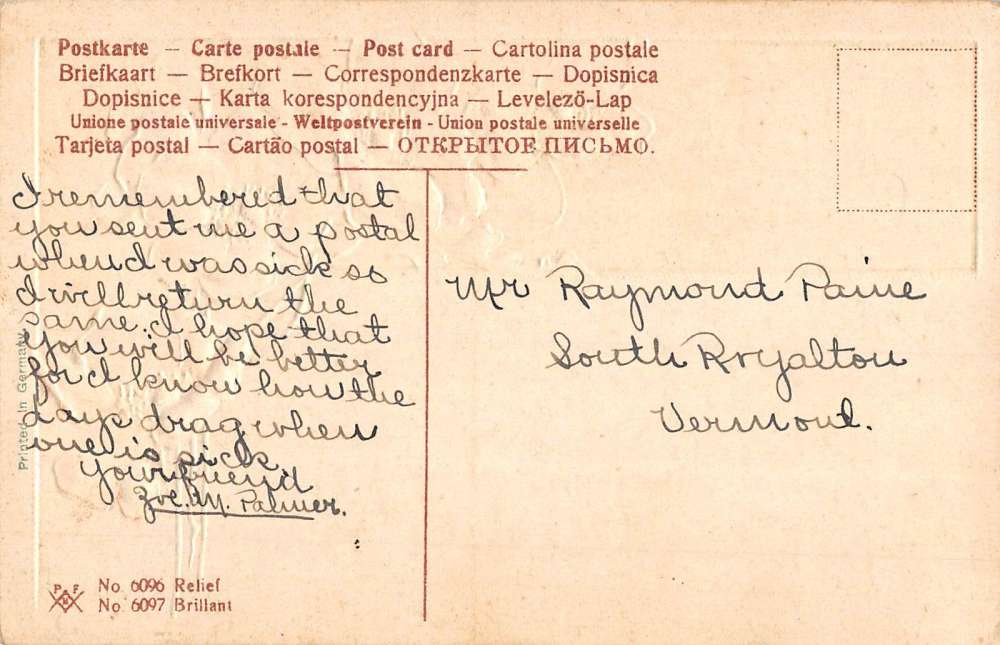 Postkarte — Carte postale — Post card — Cartolina postale
Briefkaart — Brefkort — Correspondenzkarte — Dopisnica
Dopisnice — Karta korespondencyjna — Levelező-Lap
Unione postale universale - Weltpostverein - Union postale universelle
Tarjeta postal — Cartão postal — ОТКРЫТОЕ ПИСЬМО.
I remembered that
you sent me a postal
when I was sick so
I will return the
same. I hope that
you will be better
for I know how the
days drag when
one is sick.
Your friend
Zoe. M. Palmer.
Mr Raymond Paine
South Royalton
Vermont.
Printed in Germany
P F
No. 6096 Relief
No. 6097 Brillant